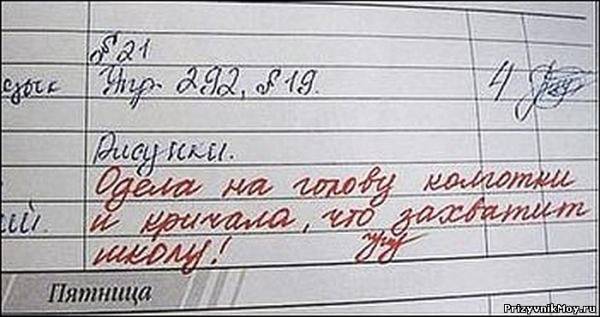 § 21
язык Упр. 292, § 19. 4
Рисунки.
Одела на голову колготки
ий. и кричала, что захватит
школу!
Пятница
PrizyvnikMoy.ru